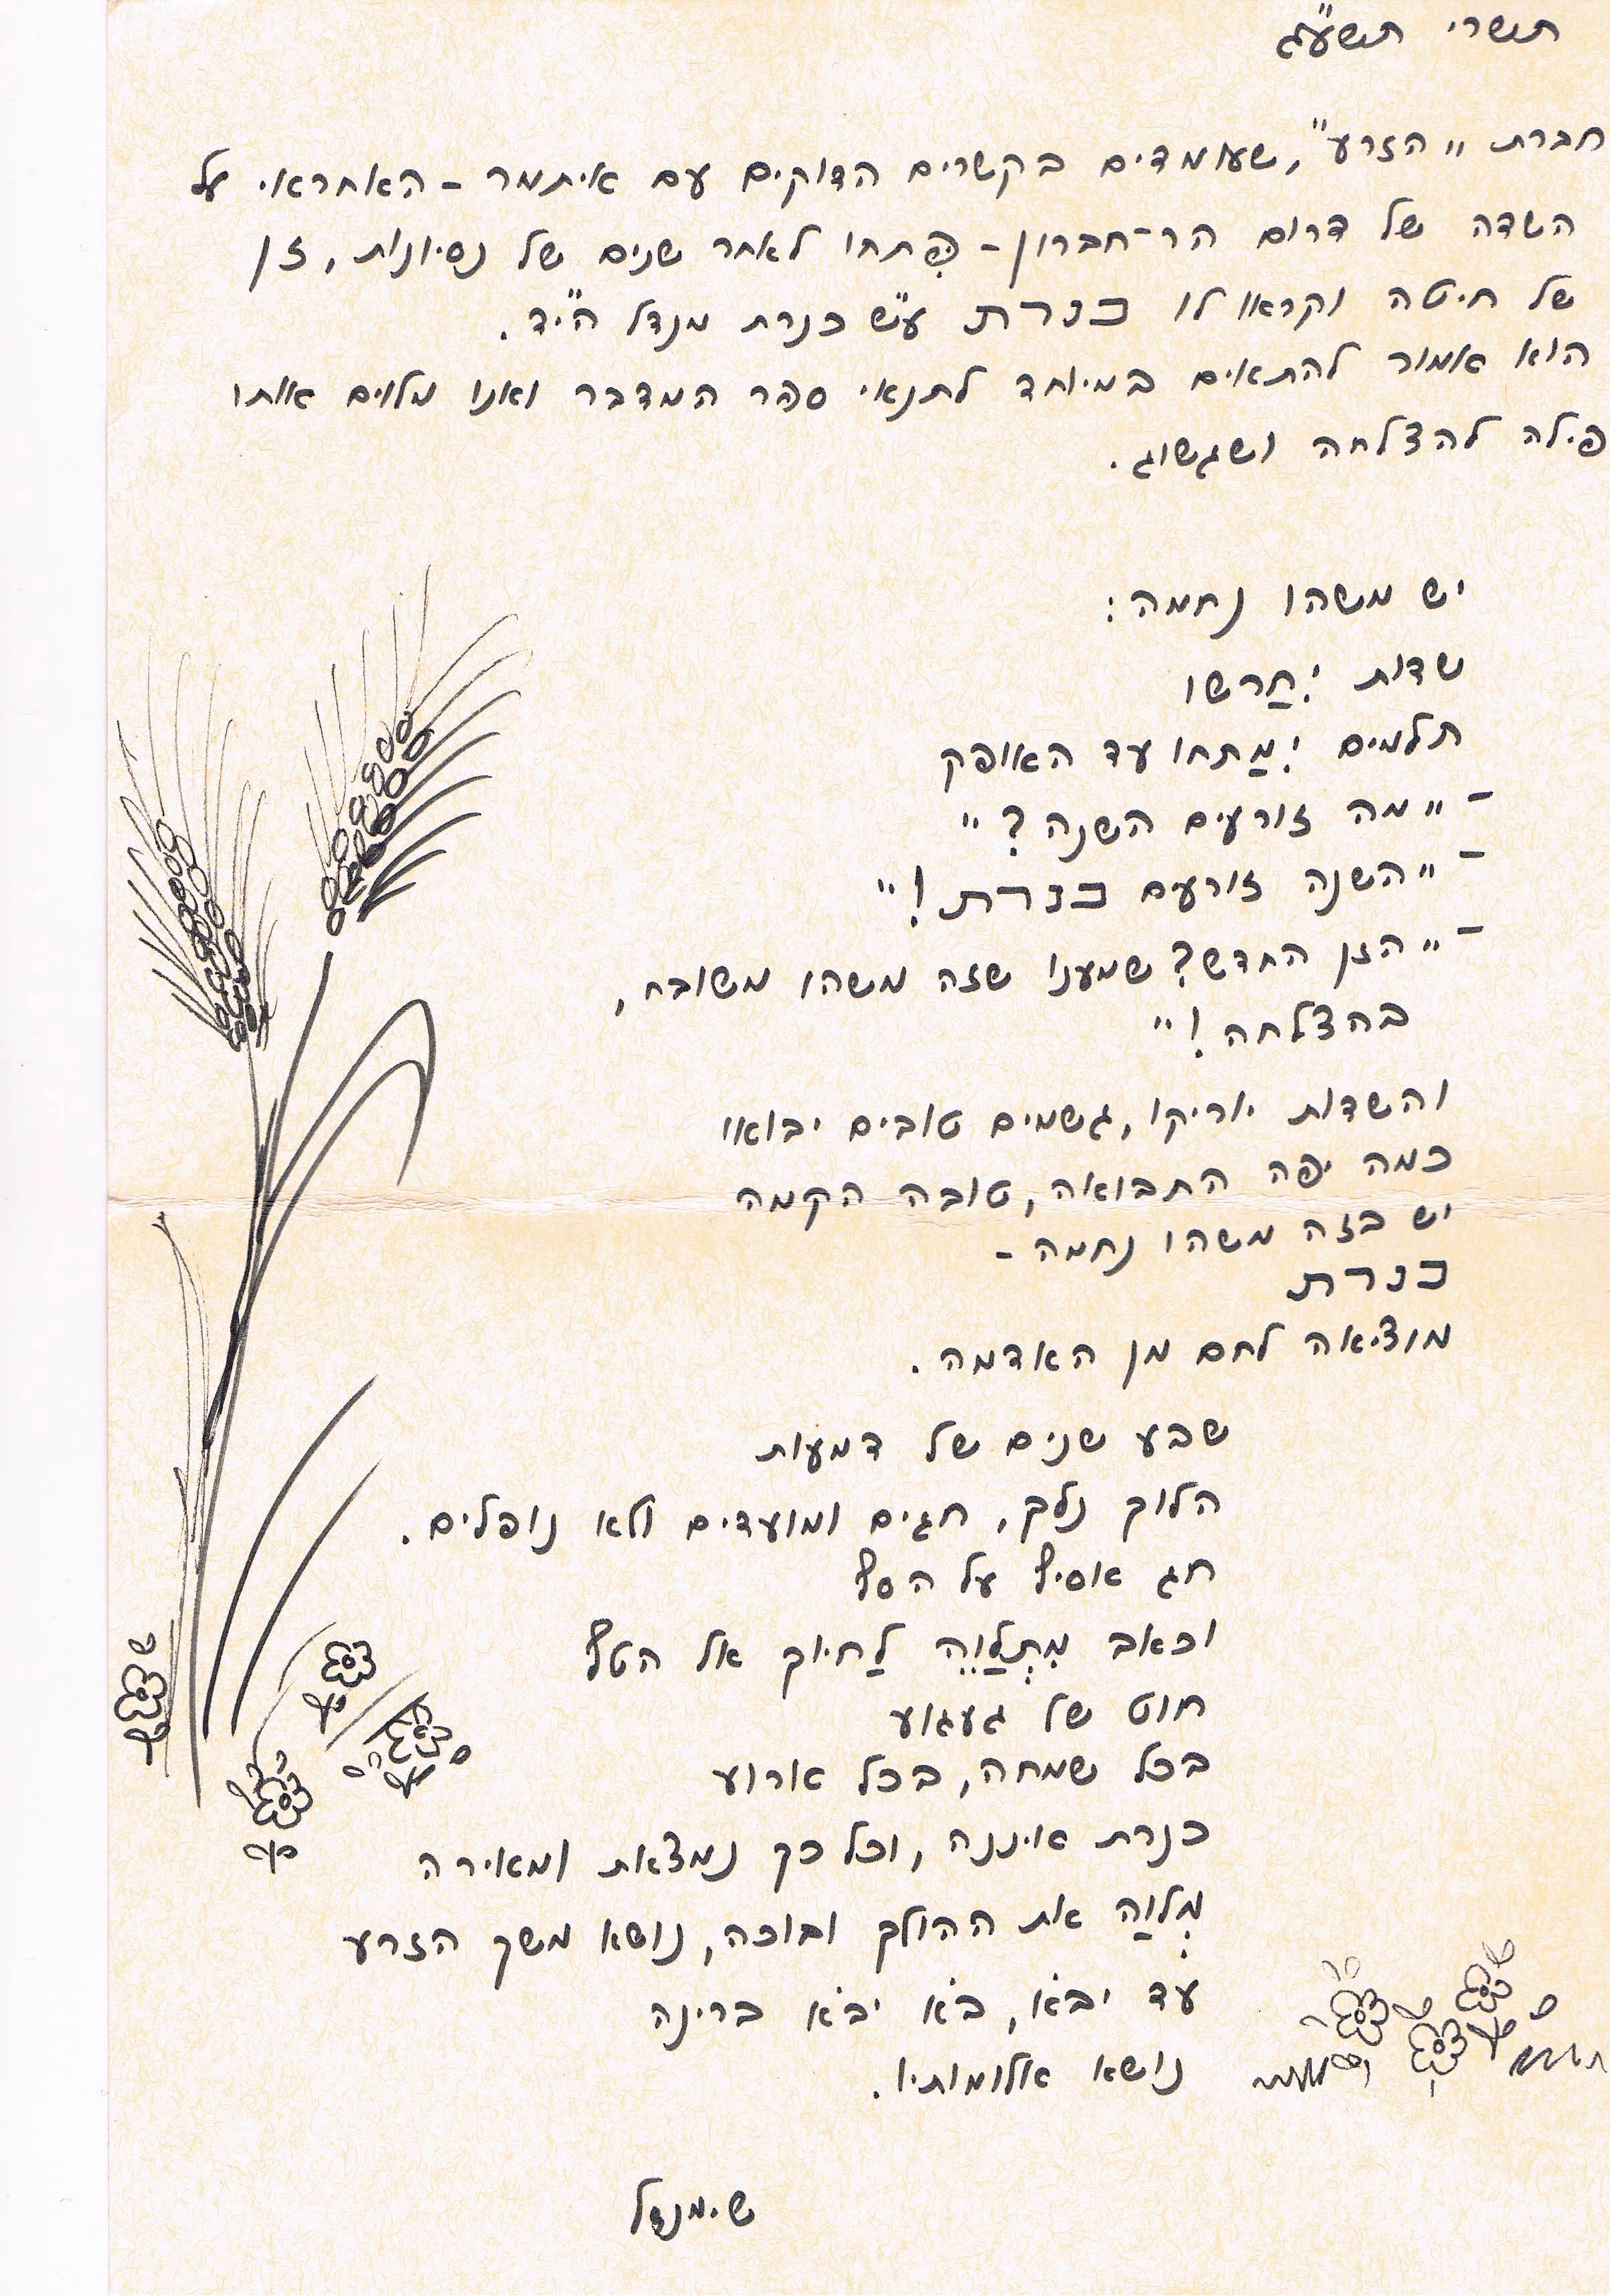 תשרי תשע"ג
חברת "הזרע", שעומדים בקשרים הדוקים עם איתמר - האחראי על
השדה של דרום הר-חברון - פִּתחו לאחר שנים של נסיונות, זן
של חיטה וקראו לו כנרת ע"ש כנרת מנדל הי"ד.
הוא אמור להתאים במיוחד לתנאי ספר המדבר ואנו מלוים אותו
פילה להצלחה ושגשוג.
יש משהו נחמה:
שדות יֵחַרשו
תלמים יִמַתחו עד האופק
- "מה זורעים השנה?"
- "השנה זורעים כנרת!"
- "הזן החדש? שמענו שזה משהו משובח,
בהצלחה!"
והשדות יוריקו, גשמים טובים יבואו
כמה יפה התבואה, טובה הקמה
יש בזה משהו נחמה -
כנרת
מוציאה לחם מן האדמה.
שבע שנים של דמעות
הלוך נלך, חגים ומועדים ולא נופלים.
חג אסיף על הסף
וכאב מִתְלַוֵה לַחיוך אל הטף
חוט של געגוע
בכל שמחה, בכל ארוע
כנרת איננה, וכל כך נמצאת ומאירה
מְלוַה את ההולך ובוכה, נושא משך הזרע
עד יבֹא, בֹא יבֹא ברינה
נושא אלומותיו.
ש. מנדל